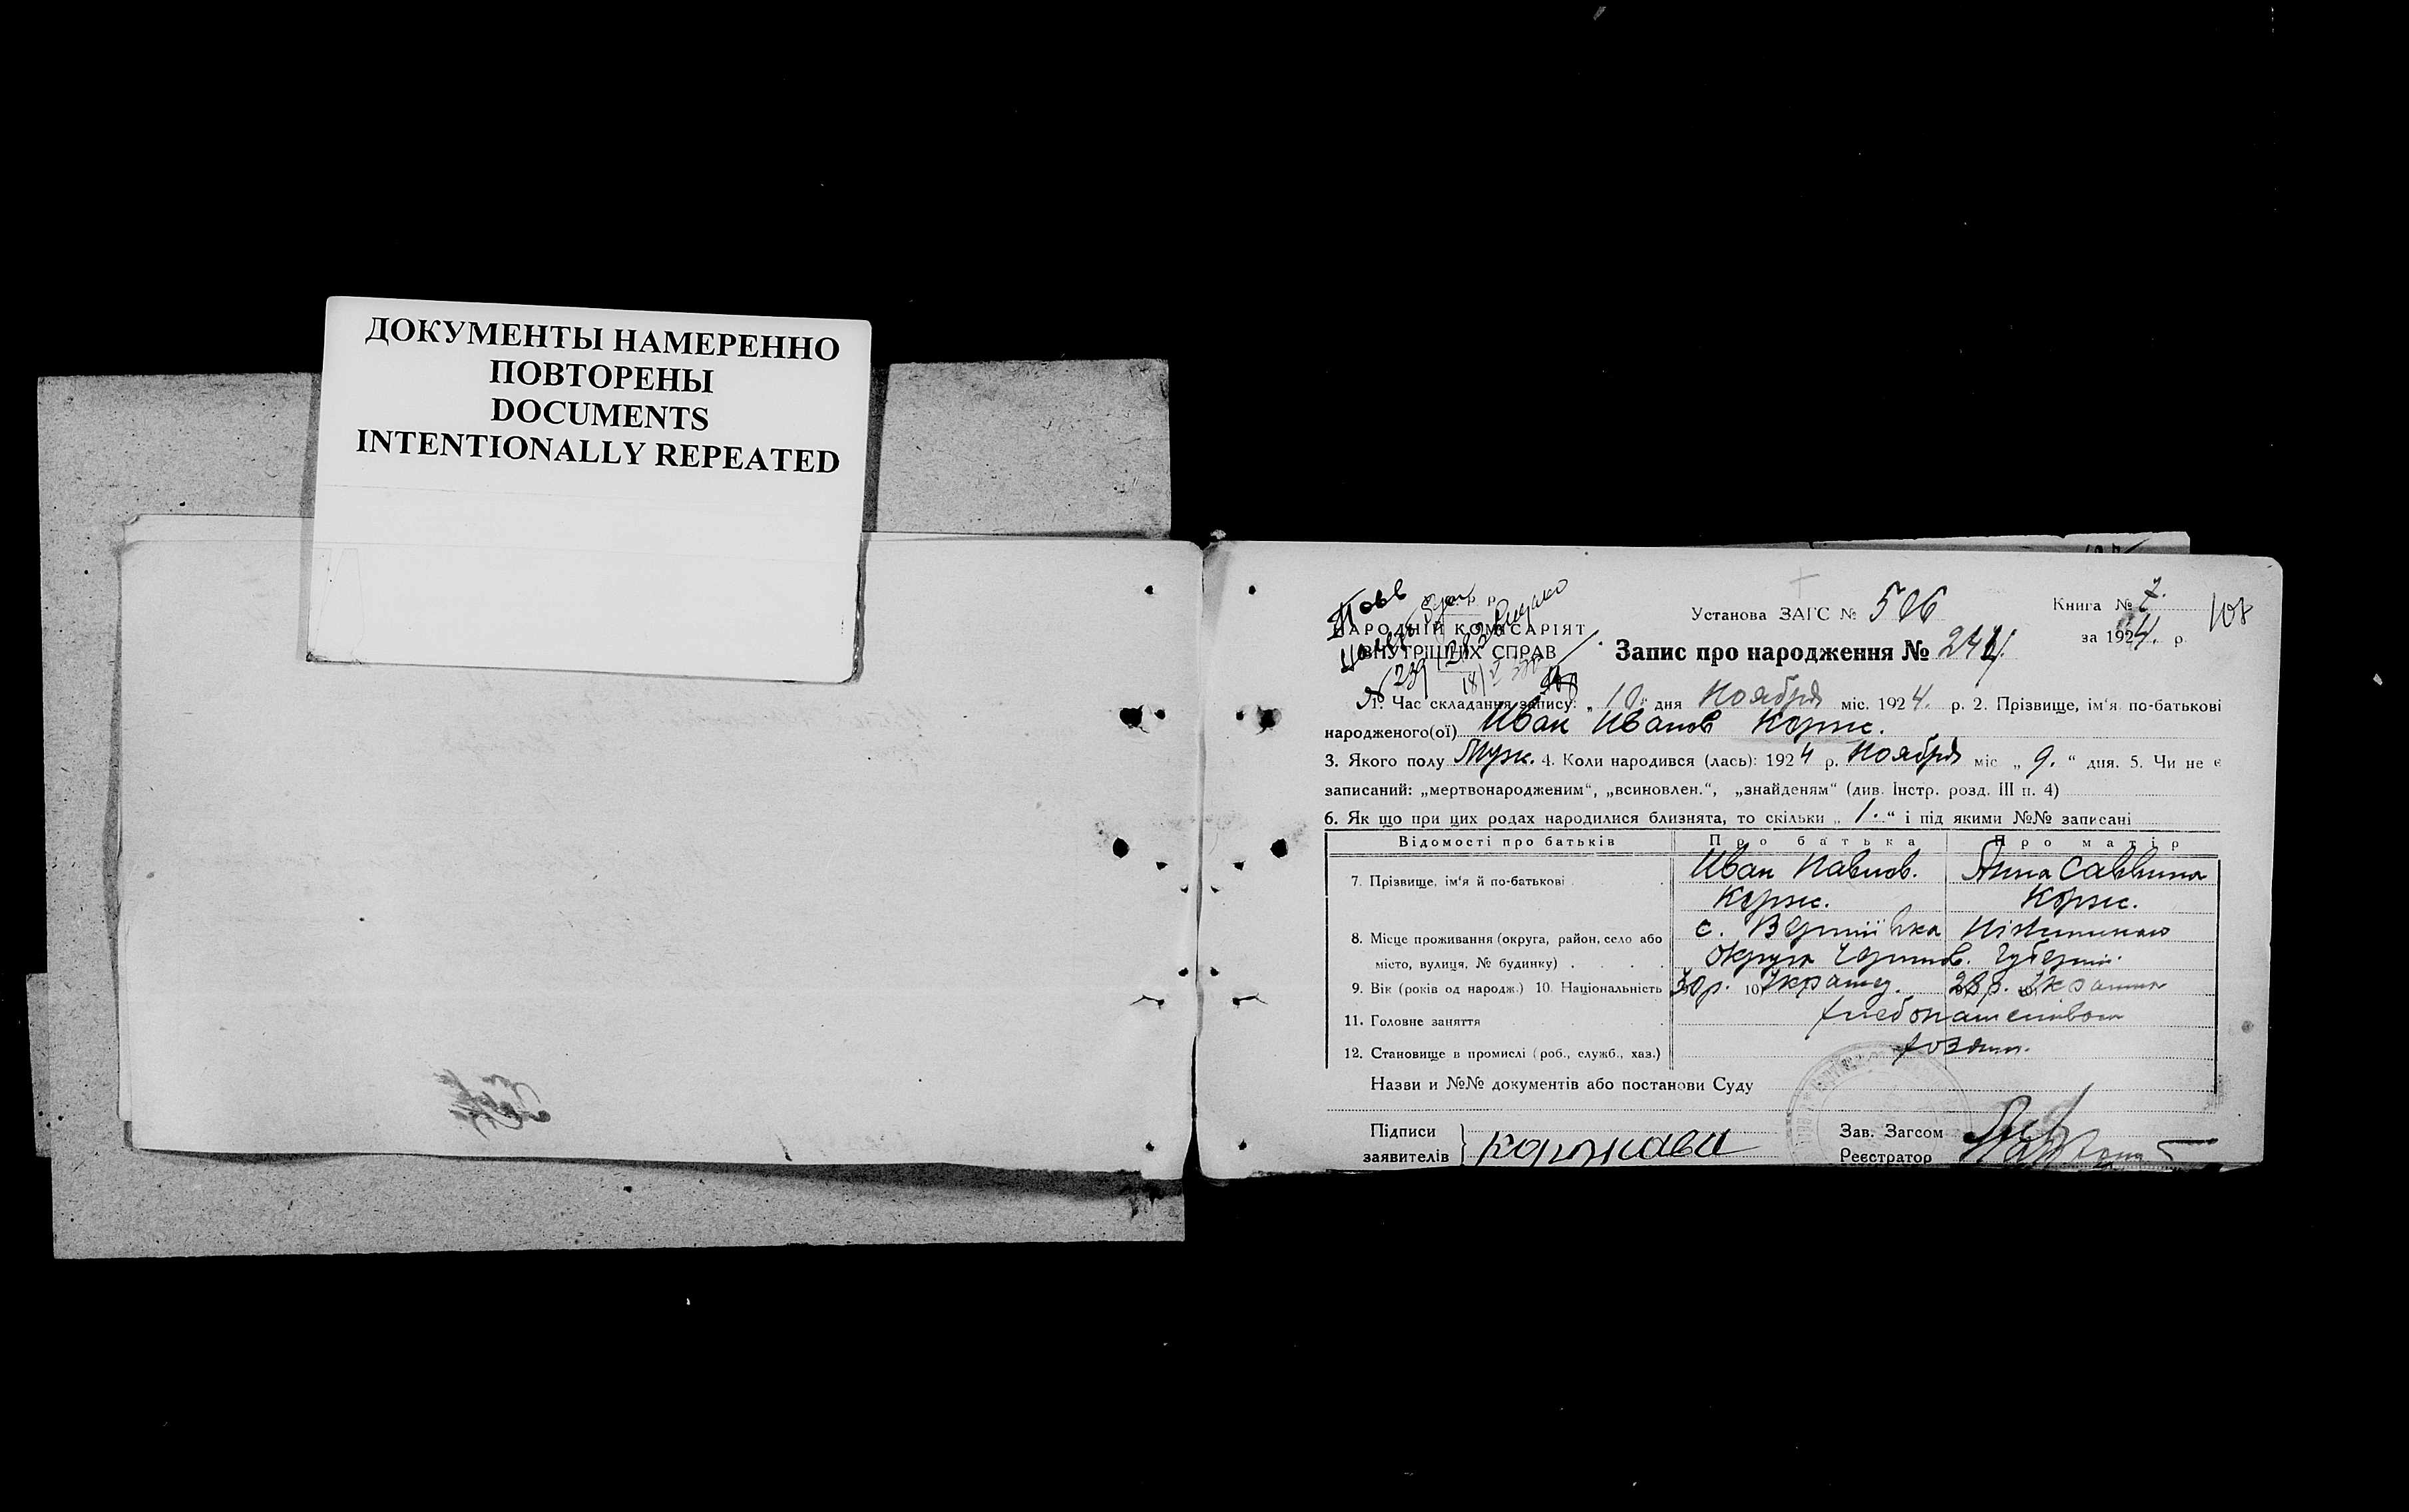 ДОКУМЕНТЫ НАМЕРЕННО
ПОВТОРЕНЫ
DOCUMENTS
INTENTIONALLY REPEATED
Установа ЗАГС № 506
Книга № 7.
за 1924. р.
108
НАРОДНІЙ КОМІСАРІЯТ
ВНУТРІШНІХ СПРАВ
Запис про народження № 244
1. Час складання запису: „ 10 " дня Ноября міс. 1924. р. 2. Прізвище, ім'я по-батькові
народженого(ої) Иван Иванов Корж.
3. Якого полу Муж. 4. Коли народився (лась): 1924 р. Ноября міс „ 9. " дня. 5. Чи не є
записаний: „мертвонародженим", „всиновлен.", „знайденям" (див. Інстр. розд. III п. 4)
6. Як що при цих родах народилися близнята, то скільки „ 1. " і під якими №№ записані
Відомості про батьків Про батька Про матір
7. Прізвище, ім'я й по-батькові Иван Павлов. Анна Саввина
Корж. Корж.
8. Місце проживання (округа, район, село або с. Вертіївка Ніжинської
місто, вулиця, № будинку) округи Черниг. Губернії.
9. Вік (років од народж.) 10. Національність 30 р. 10) Украінец. 28 р. Украинка
11. Головне заняття хлебопашество
12. Становище в промислі (роб., служб., хаз.) хозяин.
Назви и №№ документів або постанови Суду
Підписи
заявителів
Зав. Загсом
Реєстратор